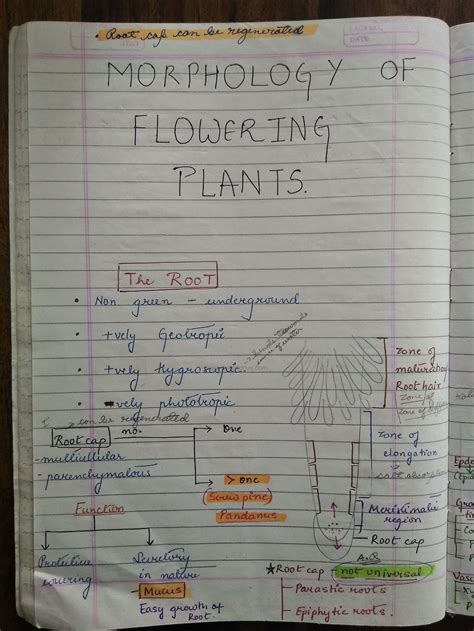 • Root cap can be regenerated
DATE
MORPHOLOGY OF
FLOWERING
PLANTS.
The ROOT
• Non green - underground
• +vely Geotropic
• +vely Hygroscopic
• -vely phototropic
can be regenerated
Root cap no. One
- multicellular
- parenchymatous
> one
Screwpine
Pandanus
Function
Protective
covering
Secretory
in nature
- Mucus
Easy growth of
Root.
Zone of
maturation
Root hair
Zone of
Zone of
elongation
Meristematic
region
Root cap
A.Q
★ Root cap - not universal
- Parastic roots
- Epiphytic roots.